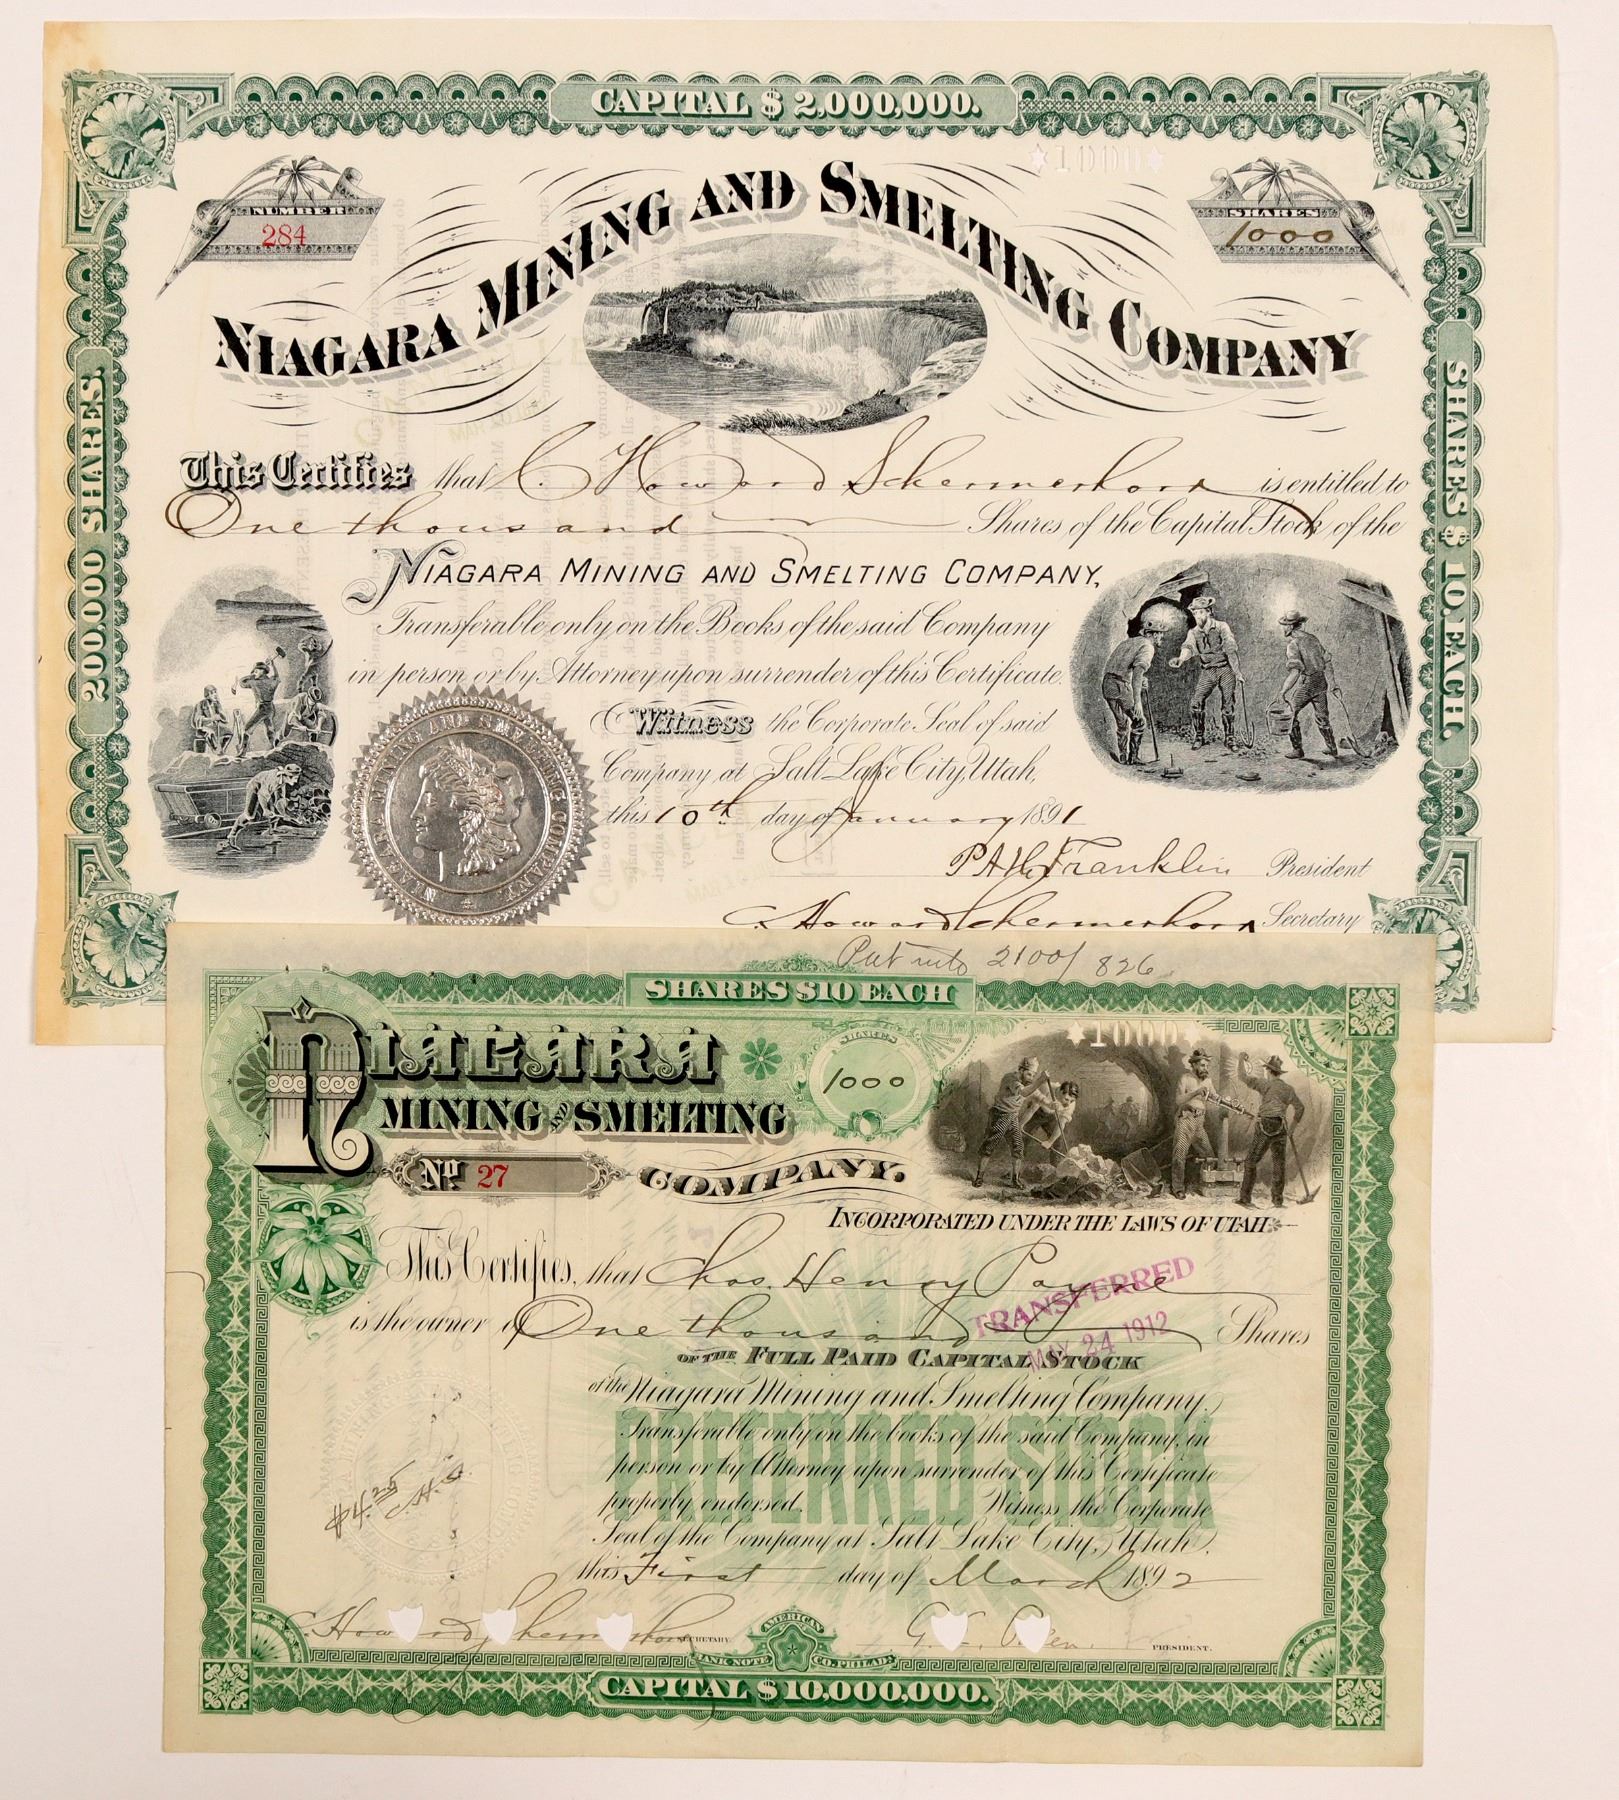 CAPITAL $ 2,000,000.
*1000*
NUMBER
284
SHARES
1000
NIAGARA MINING AND SMELTING COMPANY
200,000 SHARES.
SHARES $ 10. EACH.
This Certifies that C. Howard Schermerhorn is entitled to
One thousand Shares of the Capital Stock of the
NIAGARA MINING AND SMELTING COMPANY,
Transferable only on the Books of the said Company
in person or by Attorney upon surrender of this Certificate.
Witness the Corporate Seal of said
Company, at Salt Lake City, Utah,
this 10th day of January 1891
NIAGARA MINING AND SMELTING COMPANY
P.A.H. Franklin President
C. Howard Schermerhorn Secretary
Put into 2100/826
SHARES $10 EACH
*1000*
NIAGARA
MINING AND SMELTING
COMPANY.
SHARES
1000
No 27
INCORPORATED UNDER THE LAWS OF UTAH
This Certifies, that Chas. Henry Payne
TRANSFERRED
MAY 24 1912
is the owner of One thousand Shares
OF THE FULL PAID CAPITAL STOCK
of the Niagara Mining and Smelting Company.
Transferable only on the books of the said Company, in
person or by Attorney upon surrender of this Certificate
properly endorsed. Witness the Corporate
Seal of the Company at Salt Lake City, Utah,
this First day of March 1892
PREFERRED STOCK
$4.25 C.H.S.
C. Howard Schermerhorn SECRETARY.
PRESIDENT.
AMERICAN
BANK NOTE CO. PHILADA
CAPITAL $10,000,000.